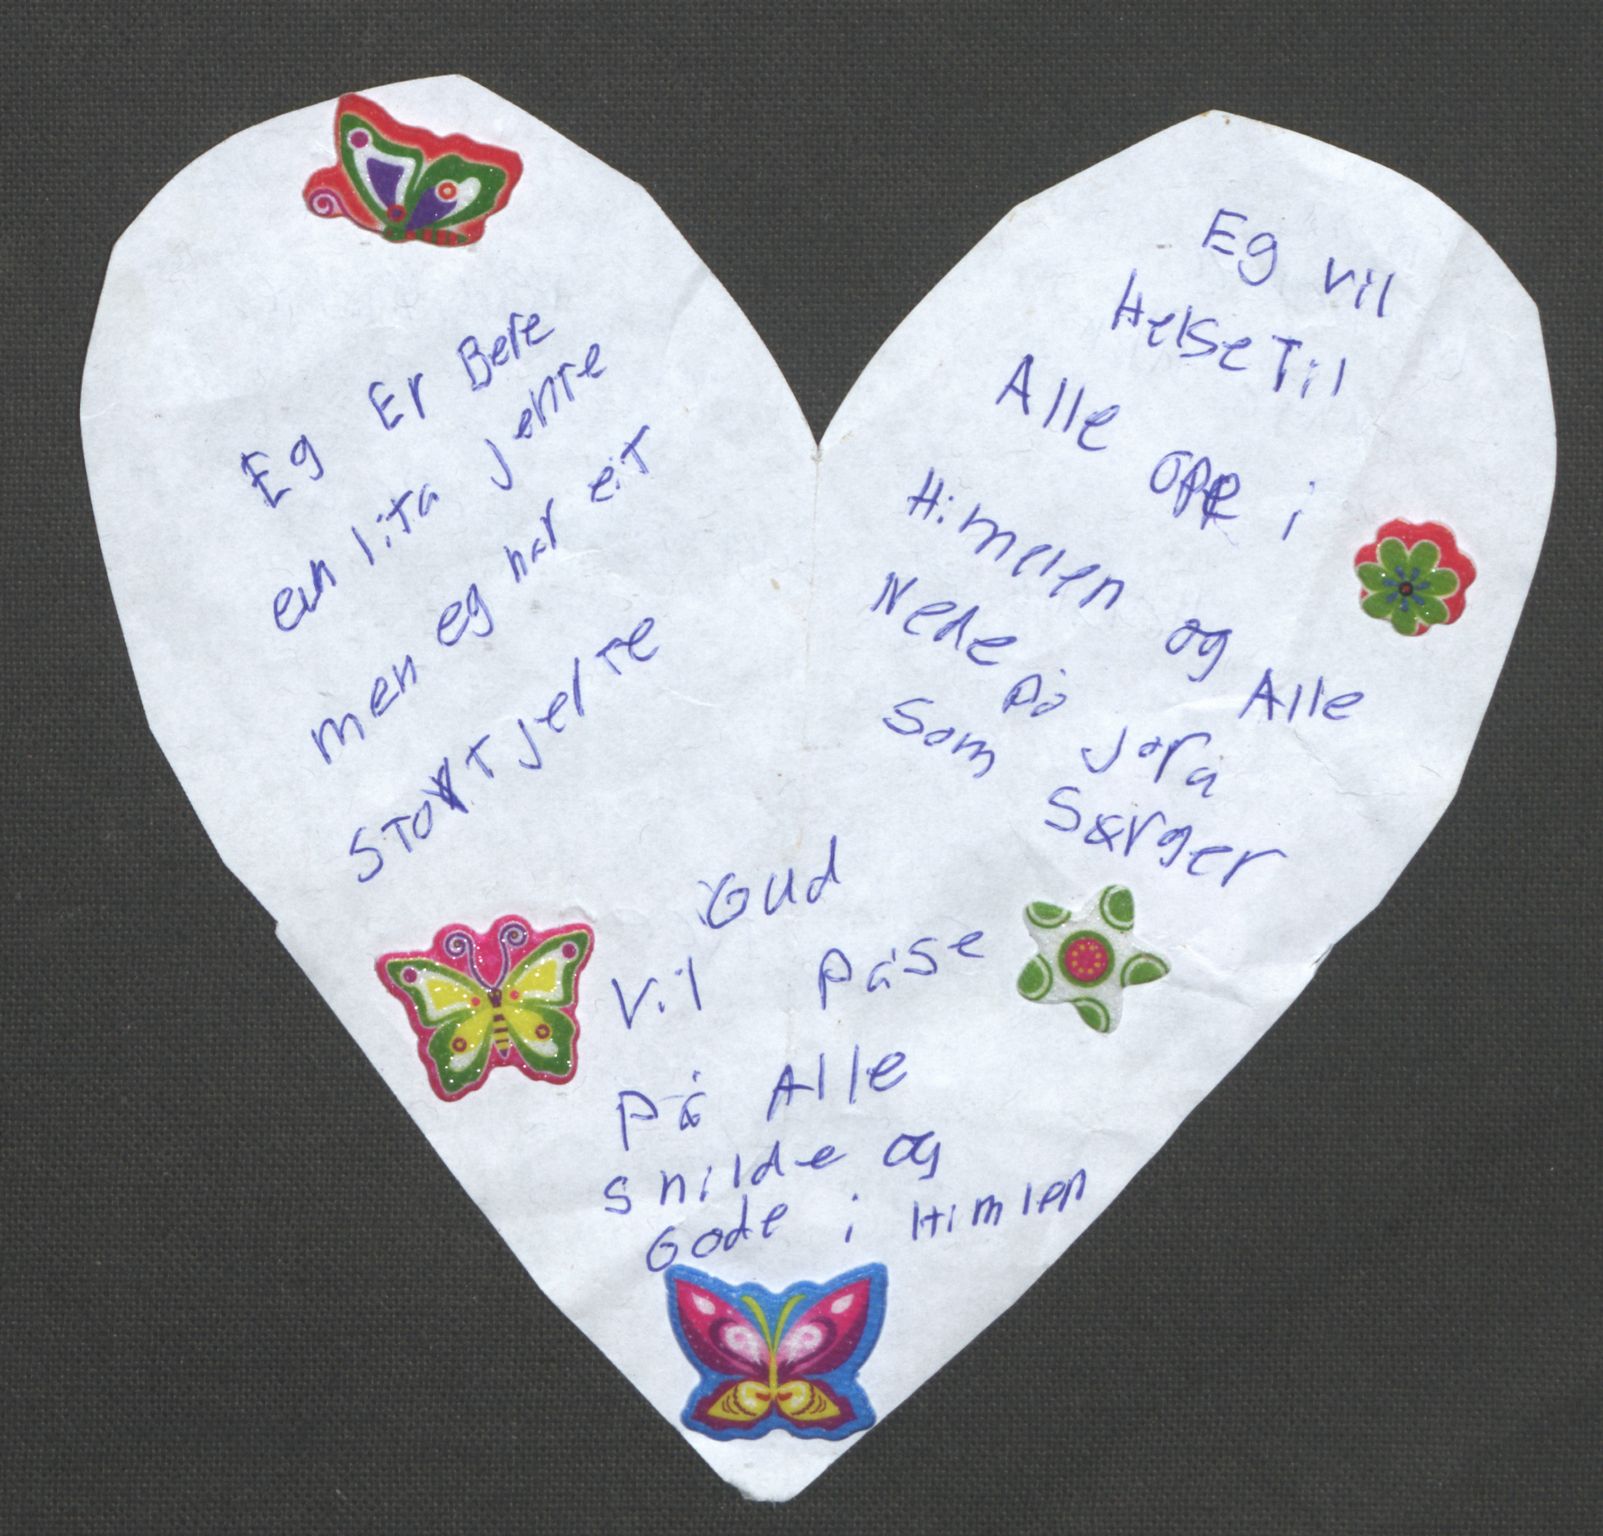 Eg Er Bere
en lita jente
men eg har eit
STORT jelte
Eg vil
Helse Til
Alle oppe i
Himelen og Alle
Nede på jora
Som Sørger
Gud
Vil påse
På Alle
snilde og
Gode i Himlen